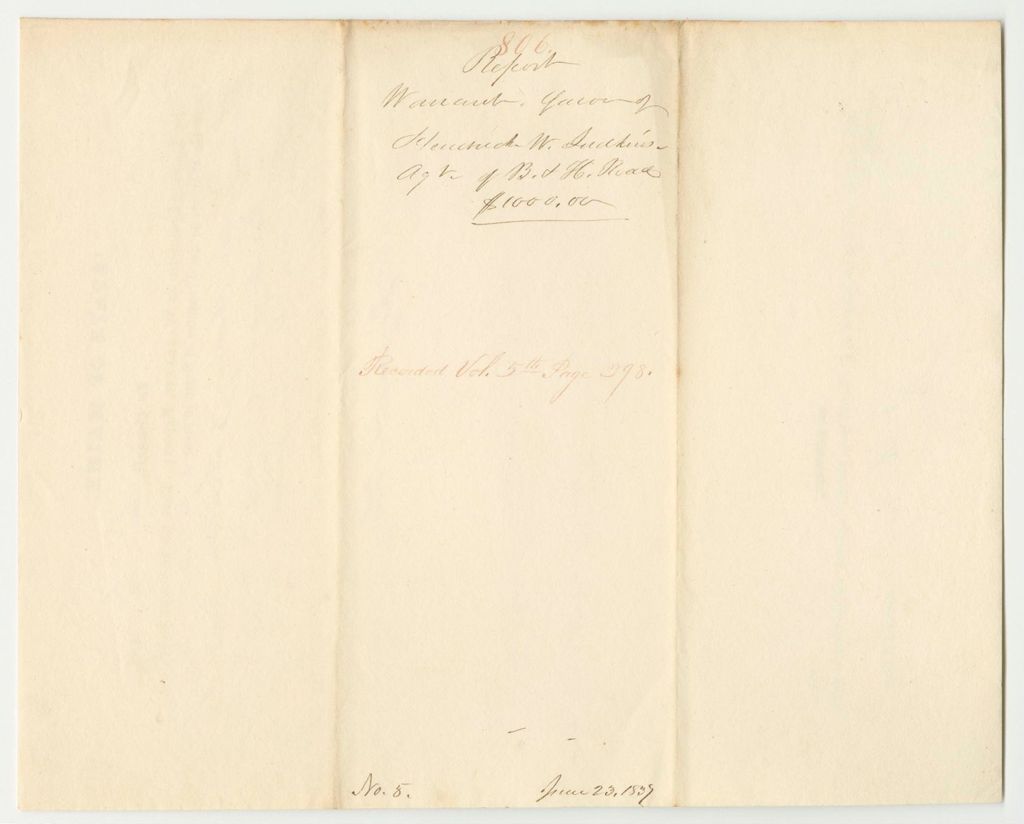 806.
Report
Warrant. favor of
Hendrick W. Judkins
Agt. of B. & H. Road
$1000.00
Recorded Vol. 5th Page 398.
No. 5. June 23. 1837